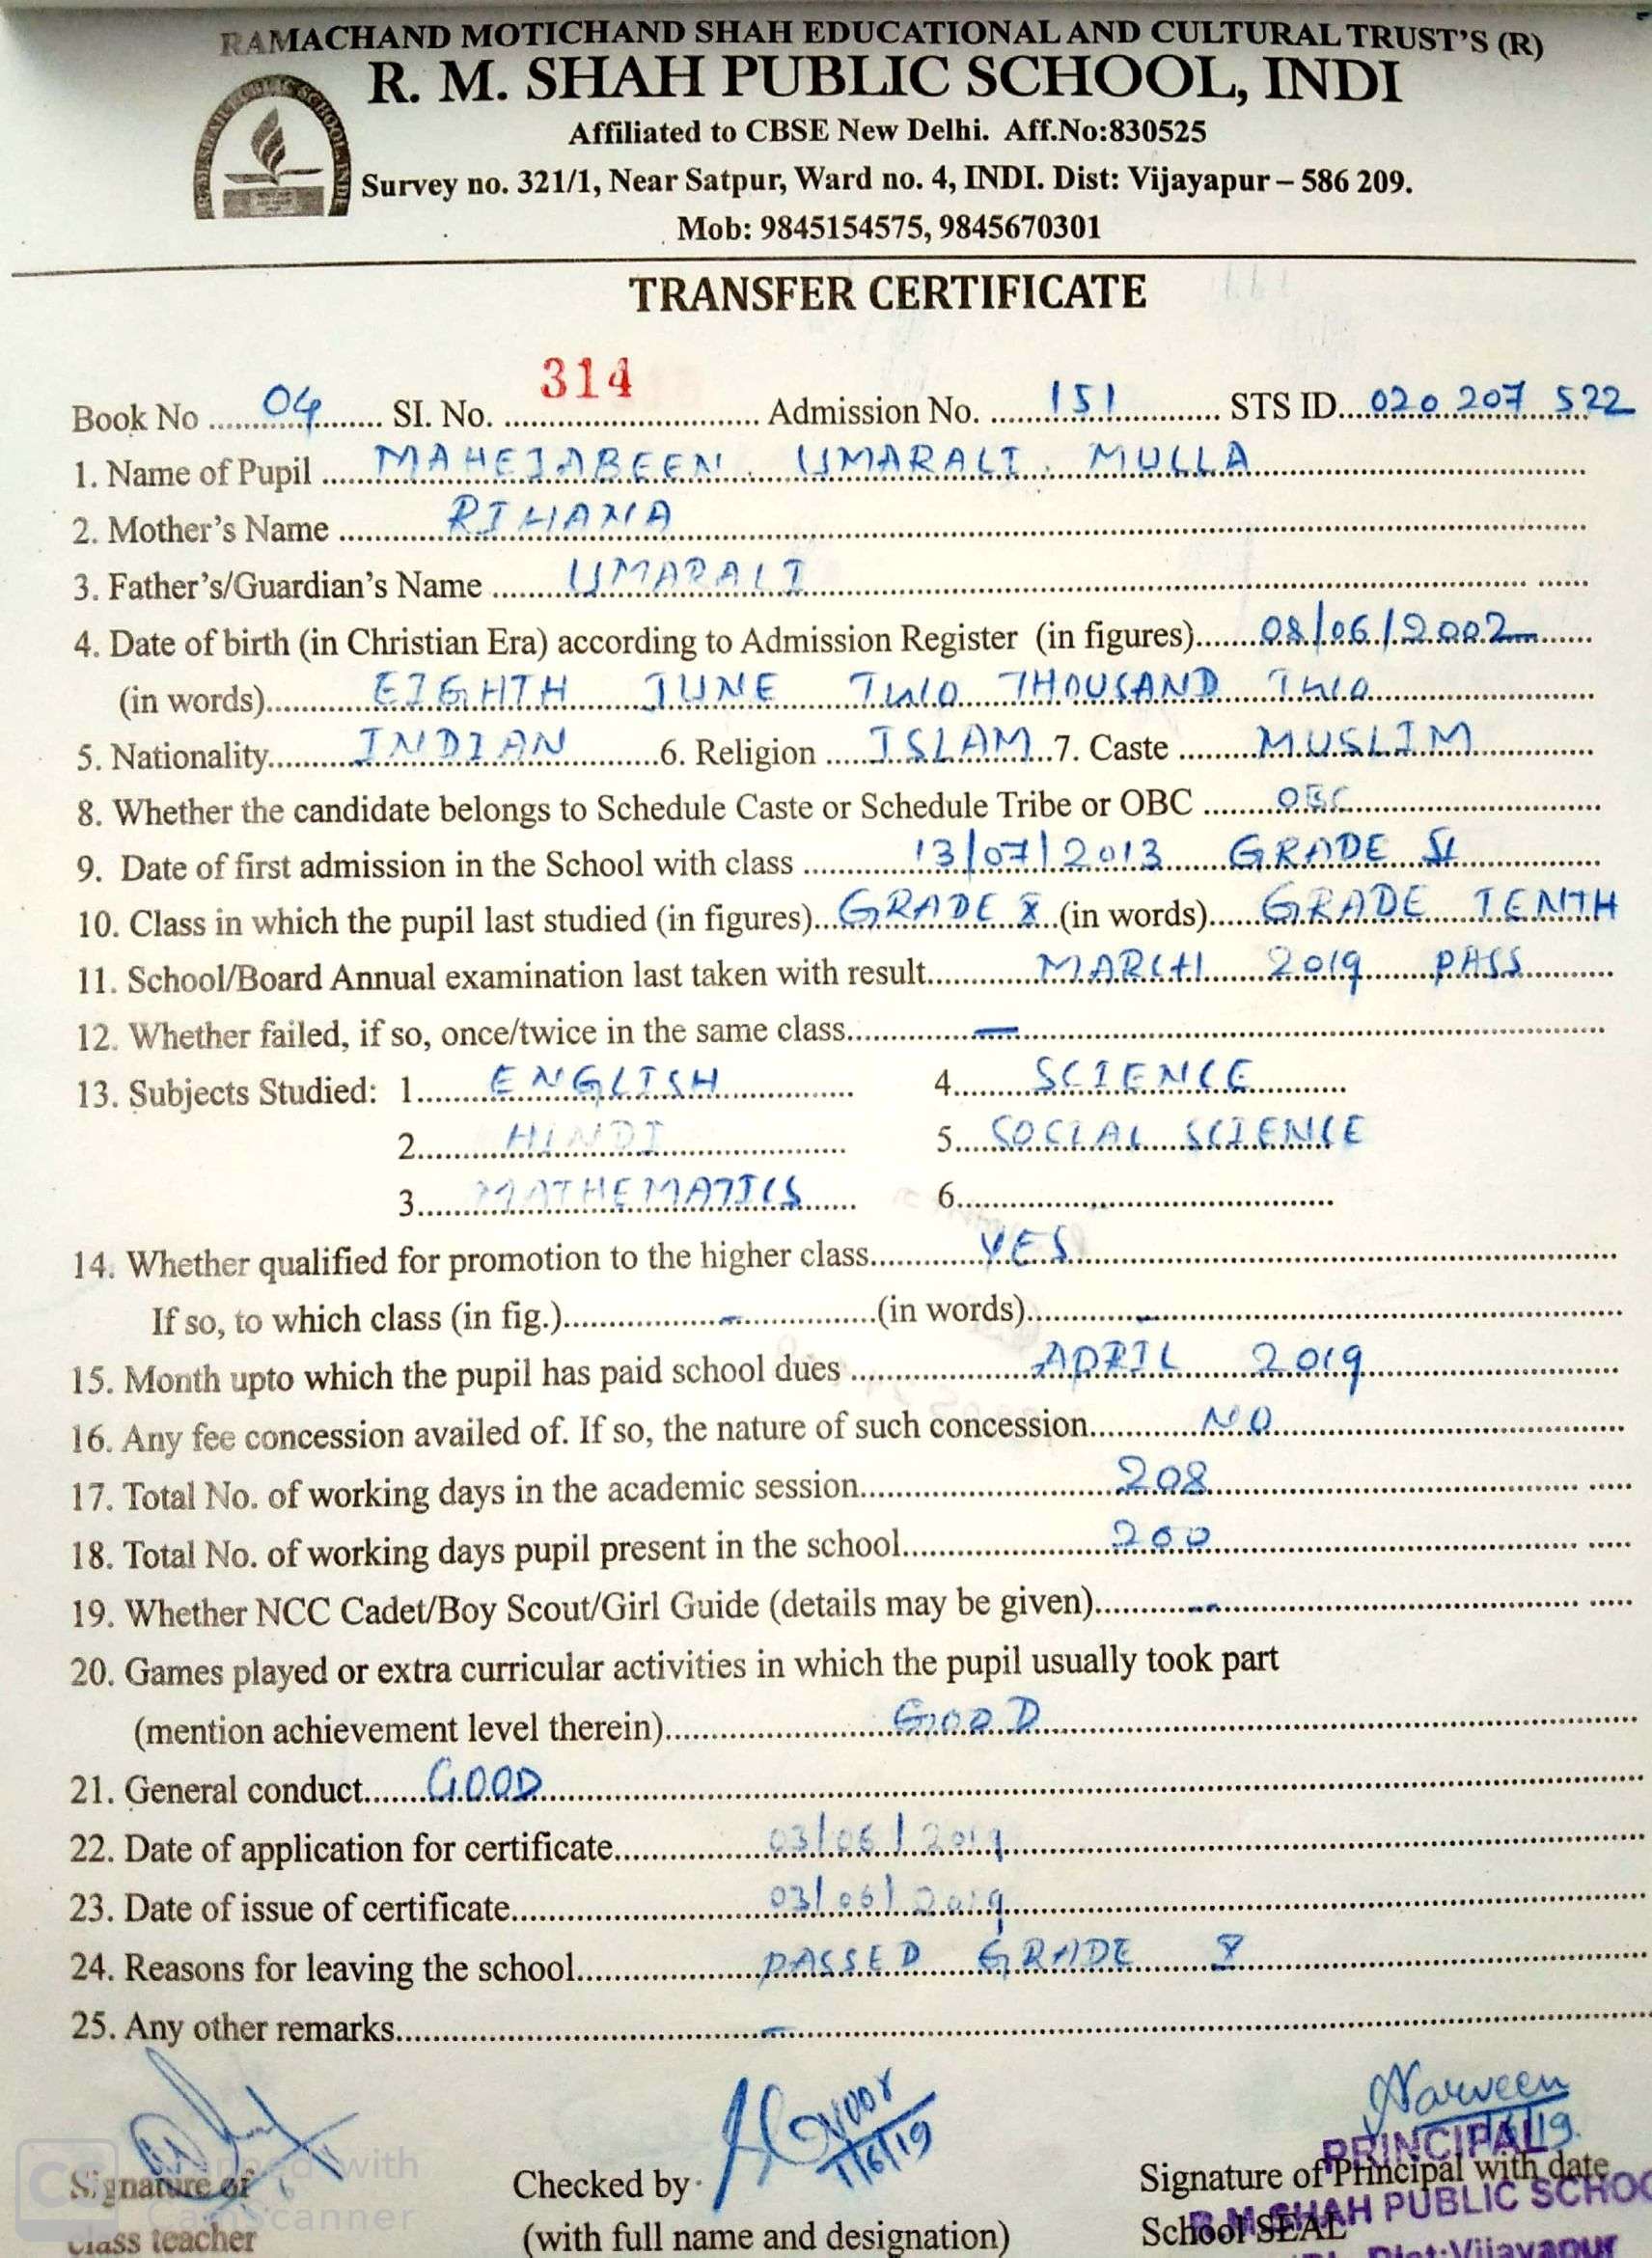 RAMACHAND MOTICHAND SHAH EDUCATIONAL AND CULTURAL TRUST'S (R)
R. M. SHAH PUBLIC SCHOOL, INDI
Affiliated to CBSE New Delhi. Aff.No:830525
Survey no. 321/1, Near Satpur, Ward no. 4, INDI. Dist: Vijayapur – 586 209.
Mob: 9845154575, 9845670301
TRANSFER CERTIFICATE
Book No 04 SI. No. 314 Admission No. 151 STS ID 020 207 522
1. Name of Pupil MAHEJABEEN. UMARALI. MULLA
2. Mother's Name RIHANA
3. Father's/Guardian's Name UMARALI
4. Date of birth (in Christian Era) according to Admission Register (in figures) 08/06/2002
(in words) EIGHTH JUNE TWO THOUSAND TWO
5. Nationality INDIAN 6. Religion ISLAM 7. Caste MUSLIM
8. Whether the candidate belongs to Schedule Caste or Schedule Tribe or OBC OBC
9. Date of first admission in the School with class 13/07/2013 GRADE
10. Class in which the pupil last studied (in figures) GRADE X (in words) GRADE TENTH
11. School/Board Annual examination last taken with result MARCH 2019 PASS
12. Whether failed, if so, once/twice in the same class —
13. Subjects Studied: 1. ENGLISH 4. SCIENCE
2. HINDI 5. SOCIAL SCIENCE
3. MATHEMATICS 6.
14. Whether qualified for promotion to the higher class YES
If so, to which class (in fig.) - (in words) -
15. Month upto which the pupil has paid school dues APRIL 2019
16. Any fee concession availed of. If so, the nature of such concession NO
17. Total No. of working days in the academic session 208
18. Total No. of working days pupil present in the school 200
19. Whether NCC Cadet/Boy Scout/Girl Guide (details may be given) -
20. Games played or extra curricular activities in which the pupil usually took part
(mention achievement level therein) GOOD
21. General conduct GOOD
22. Date of application for certificate 03/06/2019
23. Date of issue of certificate 03/06/2019
24. Reasons for leaving the school PASSED GRADE X
25. Any other remarks -
Signature of
class teacher
Scanned with
CamScanner
Checked by
(with full name and designation)
Signature of Principal with date
School SEAL
PRINCIPAL
R.M.SHAH PUBLIC SCHOO
Dist:Vijayapur